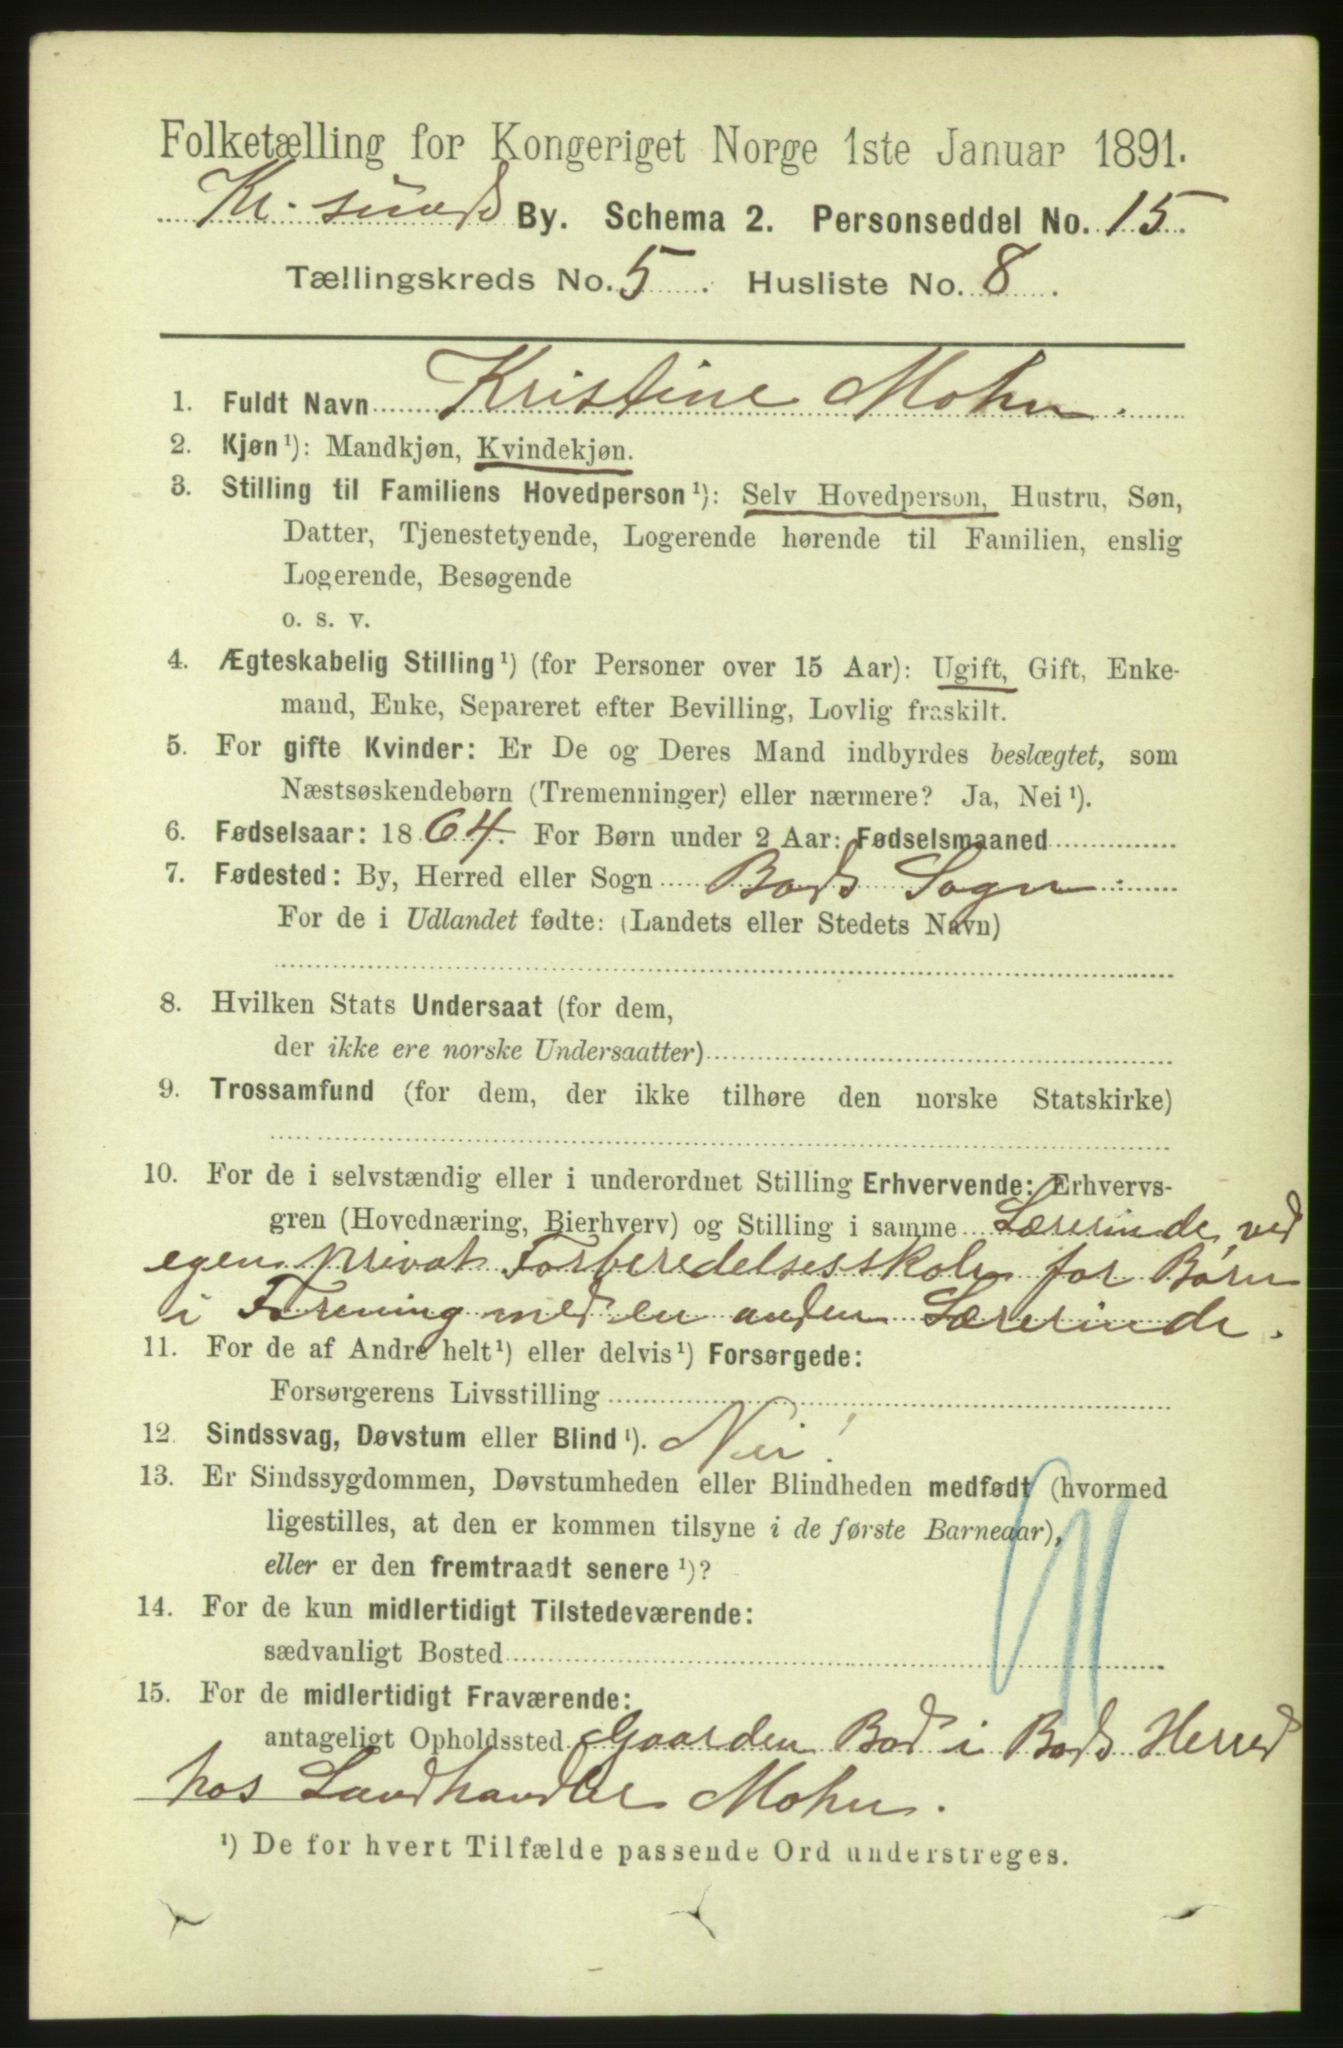 Folketælling for Kongeriget Norge 1ste Januar 1891.
Kr.sunds By. Schema 2. Personseddel No. 15.
Tællingskreds No. 5. Husliste No. 8.
1. Fuldt Navn Kristine Mohn.
2. Kjøn¹): Mandkjøn, Kvindekjøn.
3. Stilling til Familiens Hovedperson¹): Selv Hovedperson, Hustru, Søn,
Datter, Tjenestetyende, Logerende hørende til Familien, enslig
Logerende, Besøgende
o. s. v.
4. Ægteskabelig Stilling¹) (for Personer over 15 Aar): Ugift, Gift, Enke-
mand, Enke, Separeret efter Bevilling, Lovlig fraskilt.
5. For gifte Kvinder: Er De og Deres Mand indbyrdes beslægtet, som
Næstsøskendebørn (Tremenninger) eller nærmere? Ja, Nei¹).
6. Fødselsaar: 1864. For Børn under 2 Aar: Fødselsmaaned
7. Fødested: By, Herred eller Sogn Bods Sogn
For de i Udlandet fødte: (Landets eller Stedets Navn)
8. Hvilken Stats Undersaat (for dem,
der ikke ere norske Undersaatter)
9. Trossamfund (for dem, der ikke tilhøre den norske Statskirke)
10. For de i selvstændig eller i underordnet Stilling Erhvervende: Erhvervs-
gren (Hovednæring, Bierhverv) og Stilling i samme Lærerinde, ved
egen privat Forberedelsesskole for Børn
i Forening med en anden Lærerinde.
11. For de af Andre helt¹) eller delvis¹) Forsørgede:
Forsørgerens Livsstilling
12. Sindssvag, Døvstum eller Blind¹). Nei!
13. Er Sindssygdommen, Døvstumheden eller Blindheden medfødt (hvormed
ligestilles, at den er kommen tilsyne i de første Barneaar),
eller er den fremtraadt senere¹)?
14. For de kun midlertidigt Tilstedeværende:
sædvanligt Bosted
15. For de midlertidigt Fraværende:
antageligt Opholdssted Gaarden Bod i Bods Herred
hos Landhandler Mohn.
¹) De for hvert Tilfælde passende Ord understreges.